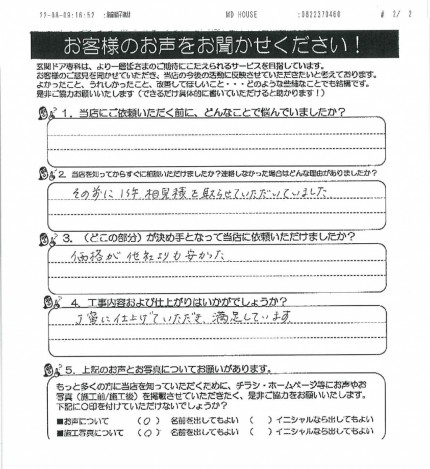 MD HOUSE
お客様のお声をお聞かせください！
玄関ドア専科は、より一層皆さまのご期待にこたえられるサービスを目指しています。
お客様のご意見を聞かせていただき、当店の今後の活動に反映させていただきたいと考えております。
よかったこと、うれしかったこと、改策してほしいこと・・・どのような些細なことでも結構です。
是非ご協力お願いいたします（できるだけ具体的に書いていただけると助かります！）
1. 当店にご依頼いただく前に、どんなことで悩んでいましたか？
2. 当店を知ってからすぐに相談いただけましたか？連絡しなかった場合はどんな理由がありましたか？
その前に 相見積を取らせていただいていました
3. （どこの部分）が決め手となって当店に依頼いただけましたか？
価格が他社よりも安かった
4. 工事内容および仕上がりはいかがでしょうか？
丁寧に仕上げていただき、満足しています
5. 上記のお声とお写真についてお願いがあります。
もっと多くの方に当店を知っていただくために、チラシ・ホームページ等にお声やお
写真（施工前/施工後）を掲載させていただきたく、是非ご協力をお願いいたします。
下記に〇印を付けていただけないでしょうか？
■お声について （〇） 名前を出してもよい （ ） イニシャルなら出してもよい
■施工写真について （〇） 名前を出してもよい （ ） イニシャルなら出してもよい